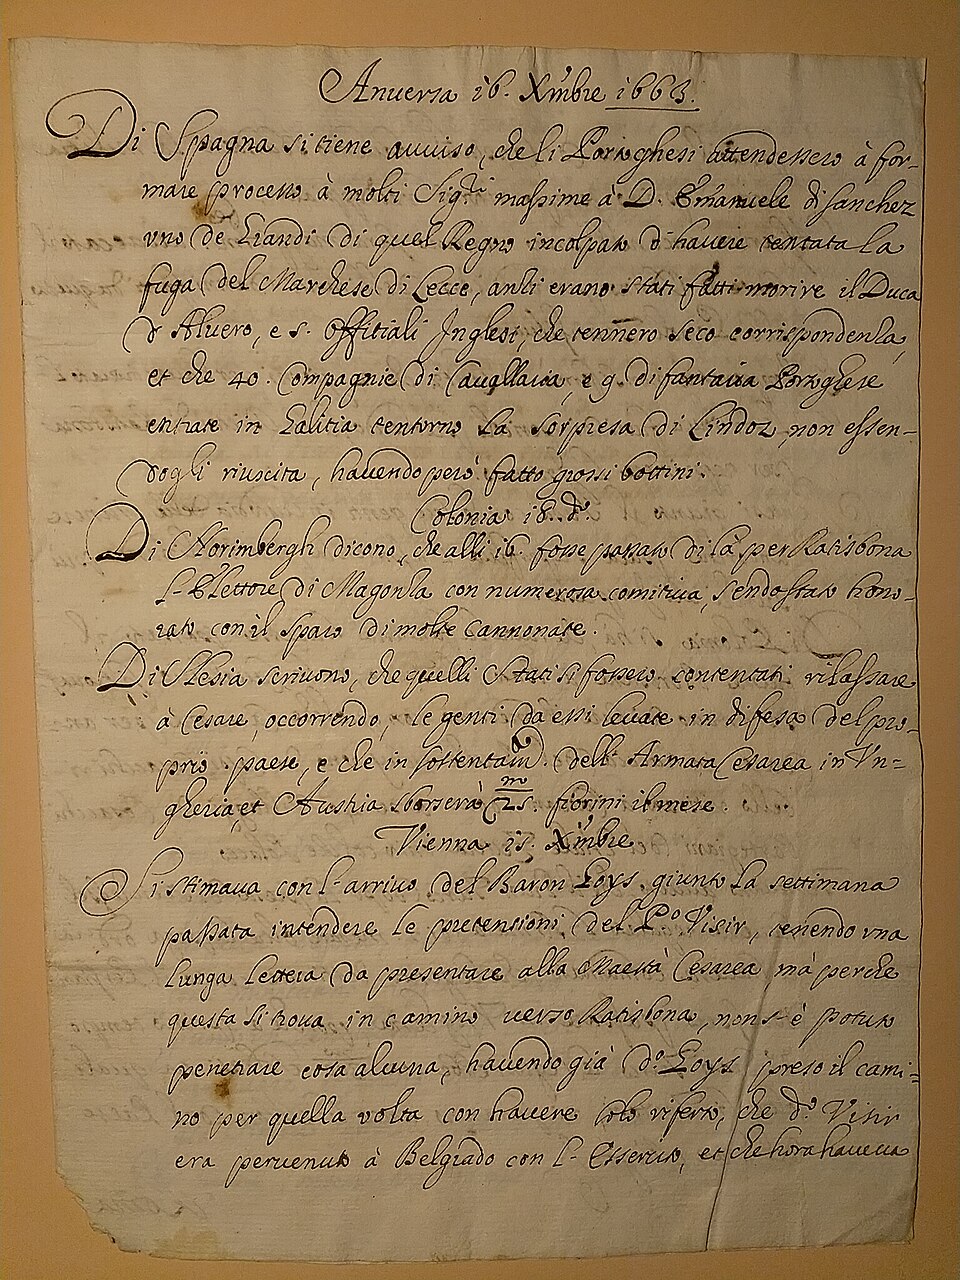 Anuersa 16. Xmbre 1663.
Di Spagna si tiene auuiso, che li Portoghesi attendessero à for-
mare processo à molti Sigri massime à D. Emanuele di Sanchez
uno de Grandi di quel Regno incolpato d'hauere tentata la
fuga del Marchese di Lecce, anzi erano stati fatti morire il Duca
d'Aluero, e 5. offitiali Inglesi, che tennero seco corrispondenza,
et che 40. Compagnie di Cauallaria, e 9. di fantaria Portoghese
entrate in Galitia tentorno la sorpresa di Lindoz, non essen-
dogli riuscita, hauendo però fatto grossi bottini.
Colonia 18. do.
Di Norimbergh dicono, che alli 16. fosse passato di là per Ratisbona
l'Elettore di Magonza con numerosa comitiua, sendo stato hono-
rato con il sparo di molte Cannonate.
Di Slesia scriuono, che quelli Stati si fossero contentati rilassare
à Cesare, occorrendo, le genti da essi leuate in difesa del pro-
prio paese, e che in sostentam.to dell' Armata Cesarea in Vn-
gheria, et Austria sborserà m/25. fiorini il mese.
Vienna 15. Xmbre
Si stimaua con l'arriuo del Baron Goys, giunto la settimana
passata intendere le pretensioni del P.o Visir, tenendo una
lunga lettera da presentare alla Maestà Cesarea, mà perche
questa si troua in camino uerso Ratisbona, non s'è potuto
penetrare cosa alcuna, hauendo già d.o Goys preso il cami-
no per quella volta con hauere solo riferto, che d.o Visir
era peruenuto à Belgrado con l'Essercito, et che hora haueua